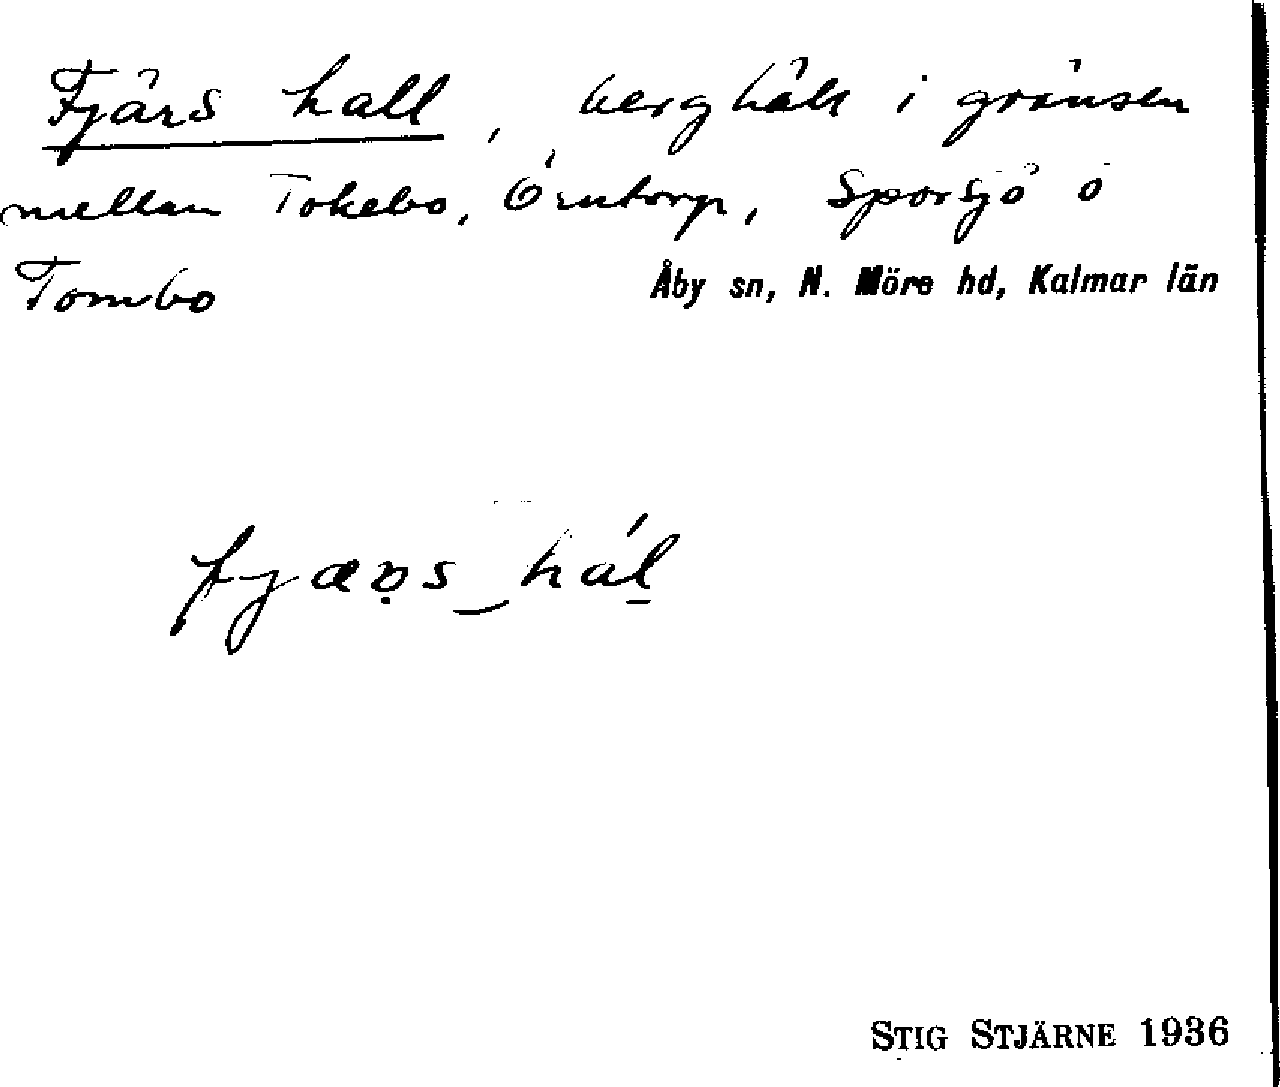 Fjärs hall, berghäll i gränsen
mellan Tokebo, Örntorp, Sporsjö o
Tombo
Åby sn, N. Möre hd, Kalmar län
fjæʀ̣s‿hál̠
STIG STJÄRNE 1936